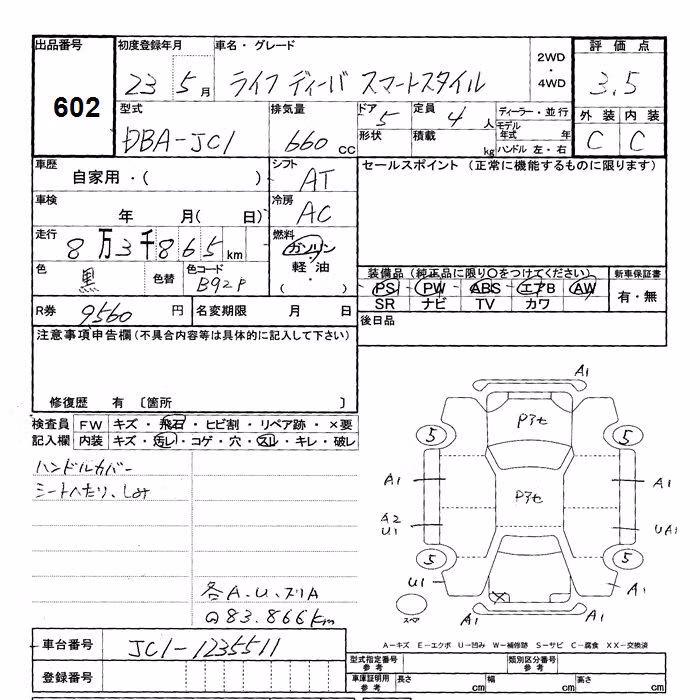 出品番号 初度登録年月 車名・グレード 評価点
602 23 5月 ライフ ディーバ スマートスタイル 2WD・4WD 3.5
型式 排気量 ドア 定員 ディーラー・並行 外装 内装
DBA-JC1 660 CC 5 4人 モデル年式 年 C C
形状 積載 kg ハンドル 左・右
車歴 シフト セールスポイント (正常に機能するものに限ります)
自家用・( ) AT
車検 冷房
年 月( 日) AC
走行 燃料
8万3千865km ガソリン
軽油
・( )
色 黒 色替 色コード B92P
装備品 (純正品に限り○をつけてください) 新車保証書
PS PW ABS エアB AW 有・無
SR ナビ TV カワ
R券 9560 円 名変期限 月 日 後日品
注意事項申告欄(不具合内容等は具体的に記入して下さい)
修復歴 有 〔箇所 〕
検査員 FW キズ・飛石・ヒビ割・リペア跡・×要
記入欄 内装 キズ・汚レ・コゲ・穴・スレ・キレ・破レ
ハンドルカバー
シートへたり、しみ
各A.U.スリA
Q83.866km
A1
Pアセ
5 5
A1 Pアセ A1
A2
U1 UA1
5 5
U1 A1
スペア A1 A1
A-キズ E-エクボ U-凹み W-補修跡 S-サビ C-腐食 XX-交換済
車台番号 JC1-1235511
型式指定番号 参考 類別区分番号 参考
登録番号 車庫証明用 参考 長さ cm 幅 cm 高さ cm